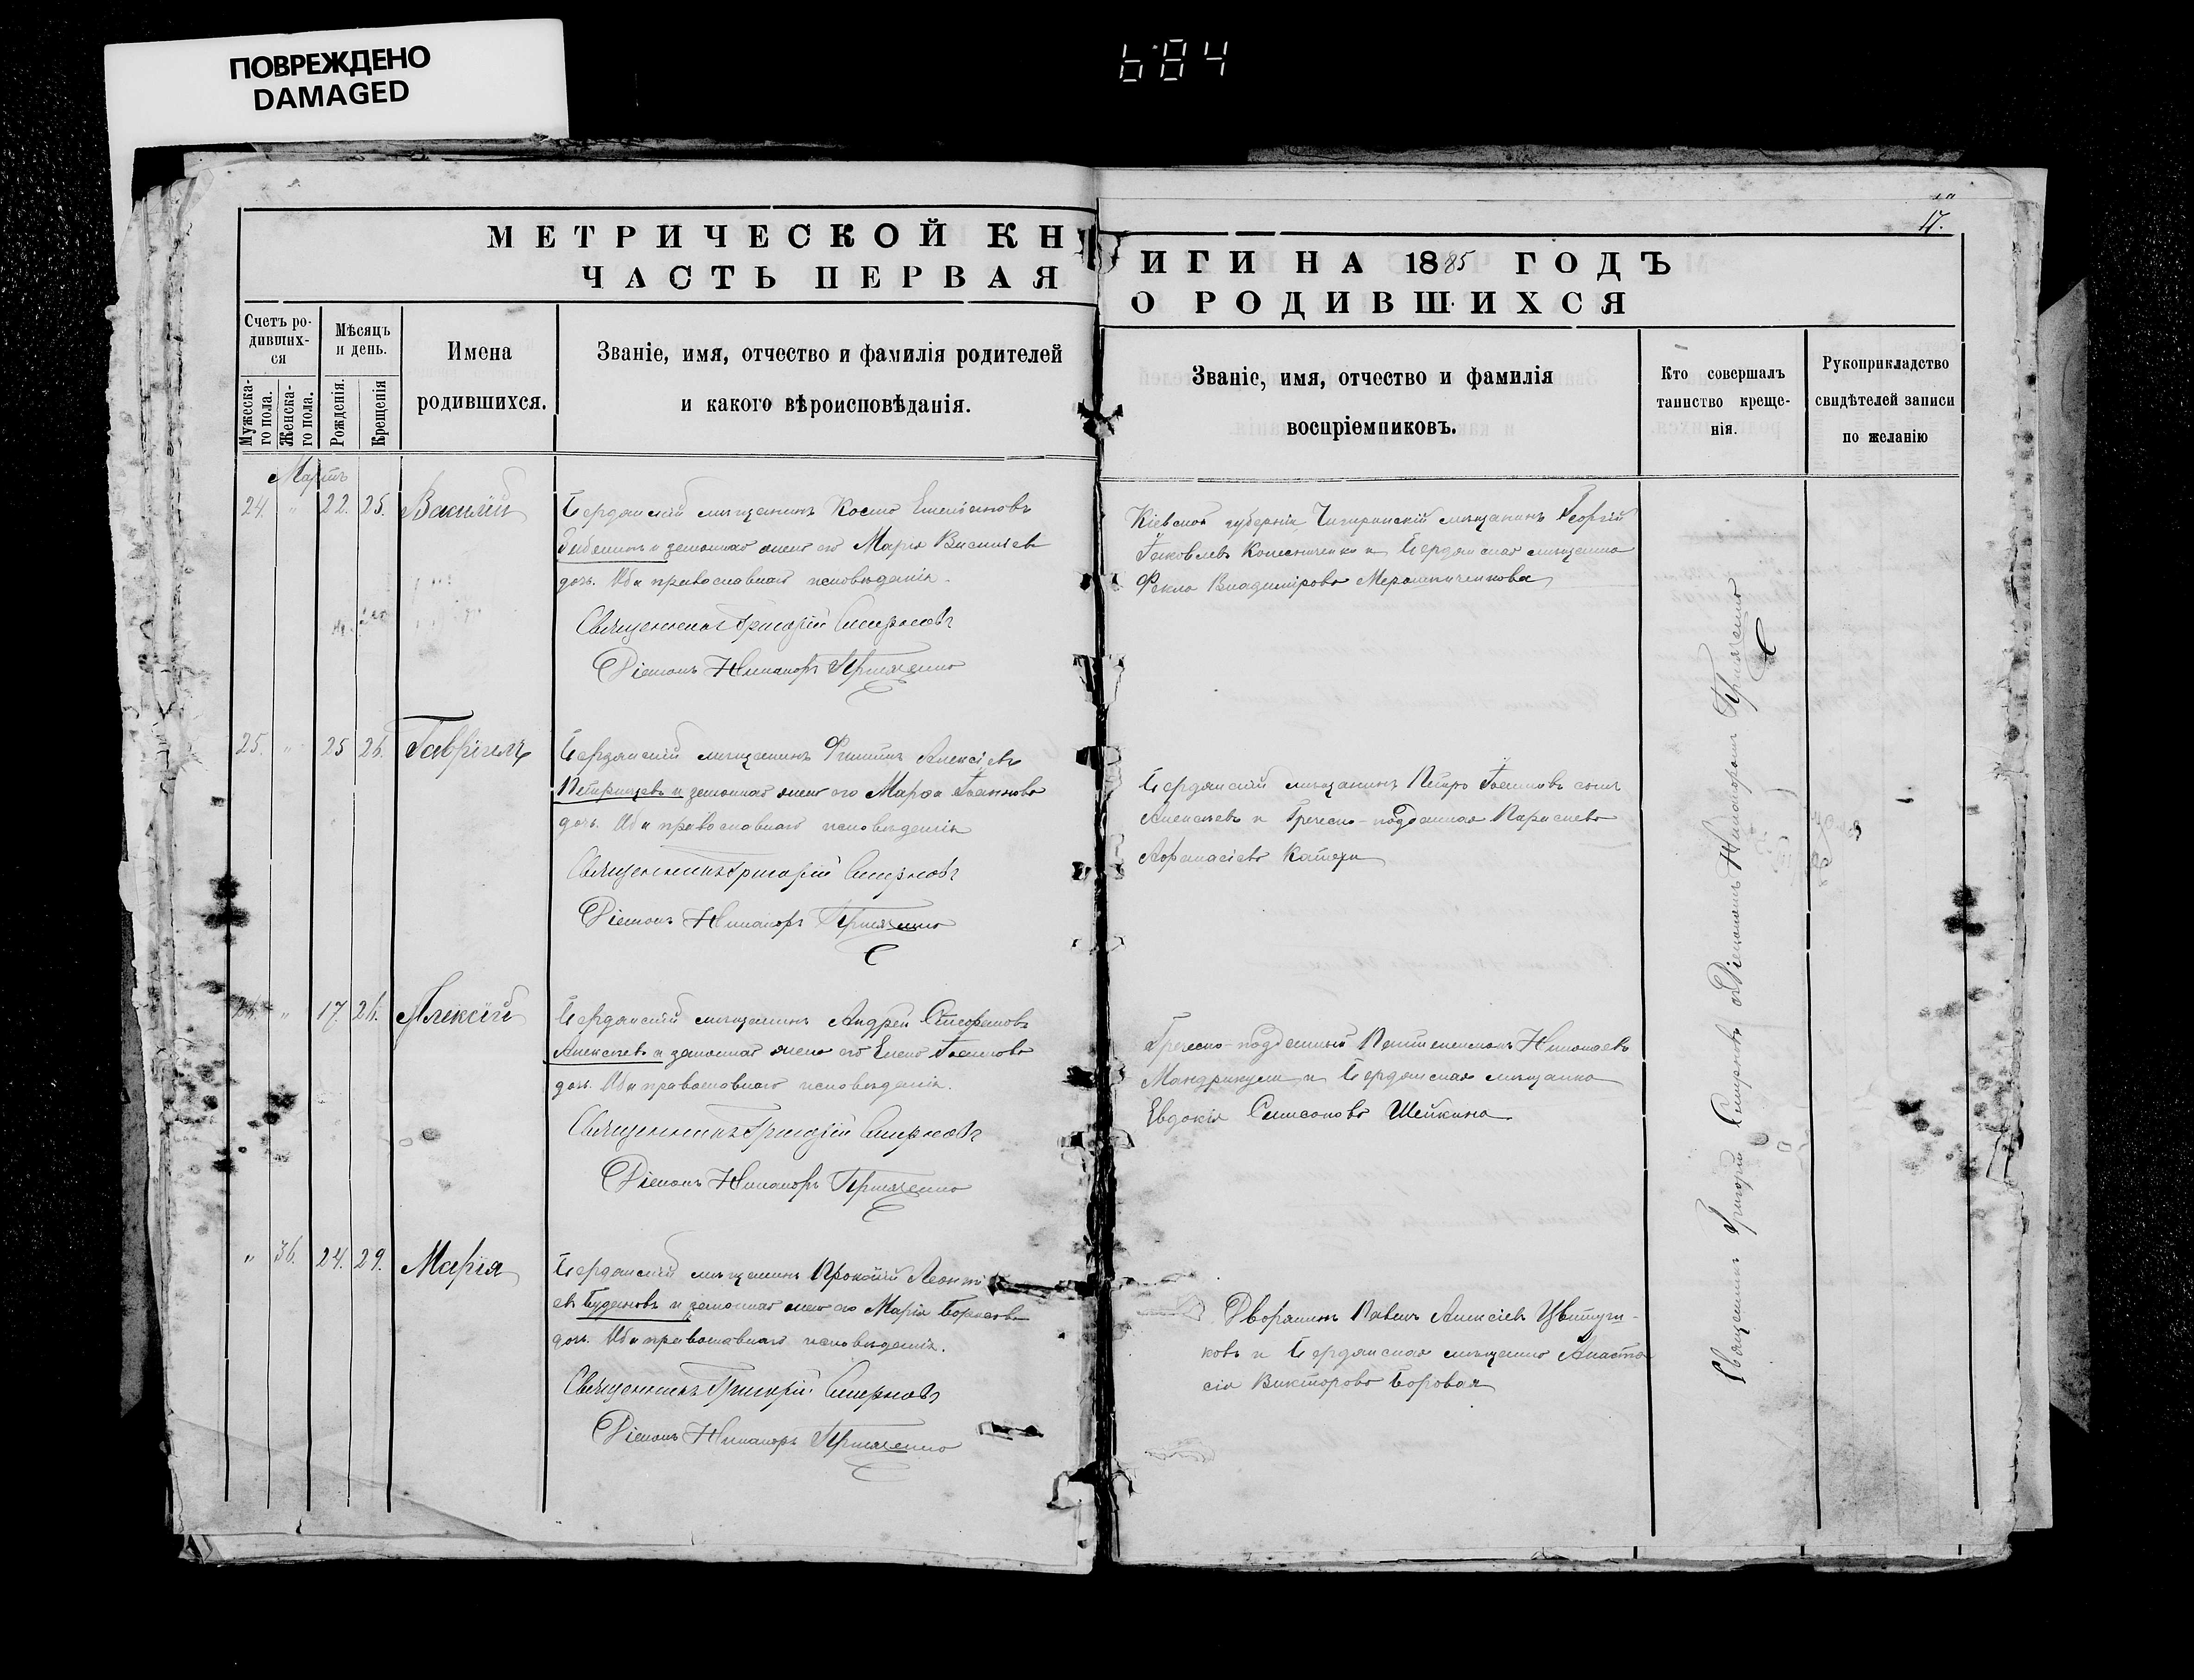 ПОВРЕЖДЕНО
DAMAGED
684
17.
МЕТРИЧЕСКОЙ КН
ИГИ НА 1885 ГОДЪ
ЧАСТЬ ПЕРВАЯ
О РОДИВШИХСЯ
Счетъ родившихся
Мужеска-го пола.
Женска-го пола.
Мѣсяцъ и день.
Рожденія.
Крещенія
Имена
родившихся.
Званіе, имя, отчество и фамилія родителей
и какого вѣроисповѣданія.
Званіе, имя, отчество и фамилія
воспріемниковъ.
Кто совершалъ
таинство креще-
нія.
Рукоприкладство
свидѣтелей записи
по желанію
Мартъ
24. " 22. 25. Василій
Бердянскій мѣщанинъ Косма Емеліановъ
и законная жена его Марія Василіева
дочь. Оба православнаго исповѣданія.
Священникъ Григорій Смирновъ
Діаконъ Никаноръ
Кіевской губерніи Чигиринскій мѣщанинъ Георгій
Іаковлевъ и Бердянская мѣщанка
Фекла Владимірова
25. " 25 26. Гавріилъ
Бердянскій мѣщанинъ Филиппъ Алексіевъ
и законная жена его Марѳа Іоаннова
дочь. Оба православнаго исповѣданія
Священникъ Григорій Смирновъ
Діаконъ Никаноръ
Бердянскій мѣщанинъ Петръ Іоанновъ сынъ
Алексѣевъ и Греческо-подданная Параскева
Аѳанасіева
" 17. 26. Алексій
Бердянскій мѣщанинъ Андрей Стефановъ
Алексѣевъ и законная жена его Елена Іоаннова
дочь. Оба православнаго исповѣданія.
Священникъ Григорій Смирновъ
Діаконъ Никаноръ
Греческо-подданный Пантелеимонъ Николаевъ
и Бердянская мѣщанка
Евдокія Симеонова Шейкина
" 36. 24. 29. Марія
Бердянскій мѣщанинъ Прокопій Леонті
евъ Будановъ и законная жена его Марія Борисова
дочь. Оба православнаго исповѣданія.
Священникъ Григорій Смирновъ
Діаконъ Никаноръ
Дворянинъ Павелъ Алексіевъ
ковъ и Бердянская мѣщанка Анаста
сія Викторова Боровая
Священникъ Григорій Смирновъ съ Діакономъ Никаноромъ